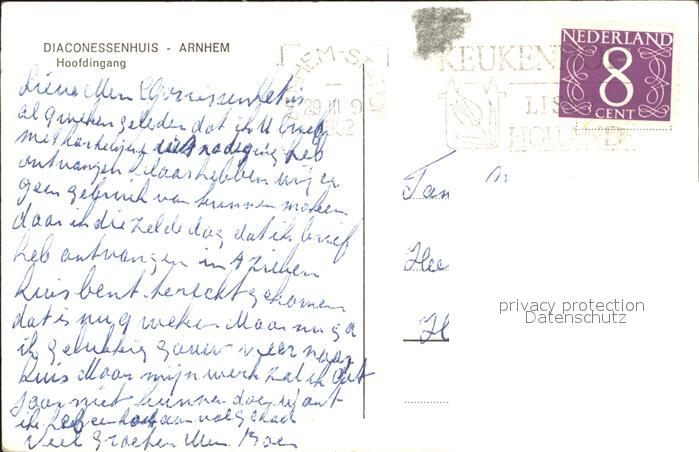 DIACONESSENHUIS - ARNHEM
Hoofdingang
Lieve Men
al weken geleden dat ik U brief
met hartelijke uitnodiging heb
ontvangen helaas hebben wij er
geen gebruik van kunnen maken
daar in die zelde dag dat ik brief
heb ontvangen in t zieken
huis bent terecht gekomen
dat is nu 9 weken Maar nu ga
ik gelukkig gauw weer naar
huis Maar mijn werk zal ik dit
jaar niet kunnen doen want
ik heb een hart aan
Veel Groeten Men.
ARNHEM-ST
29 III 9
1962
KEUKENHOF
LISSE
HOLLAND
NEDERLAND
8
CENT
Fam
Hee
privacy protection
Datenschutz